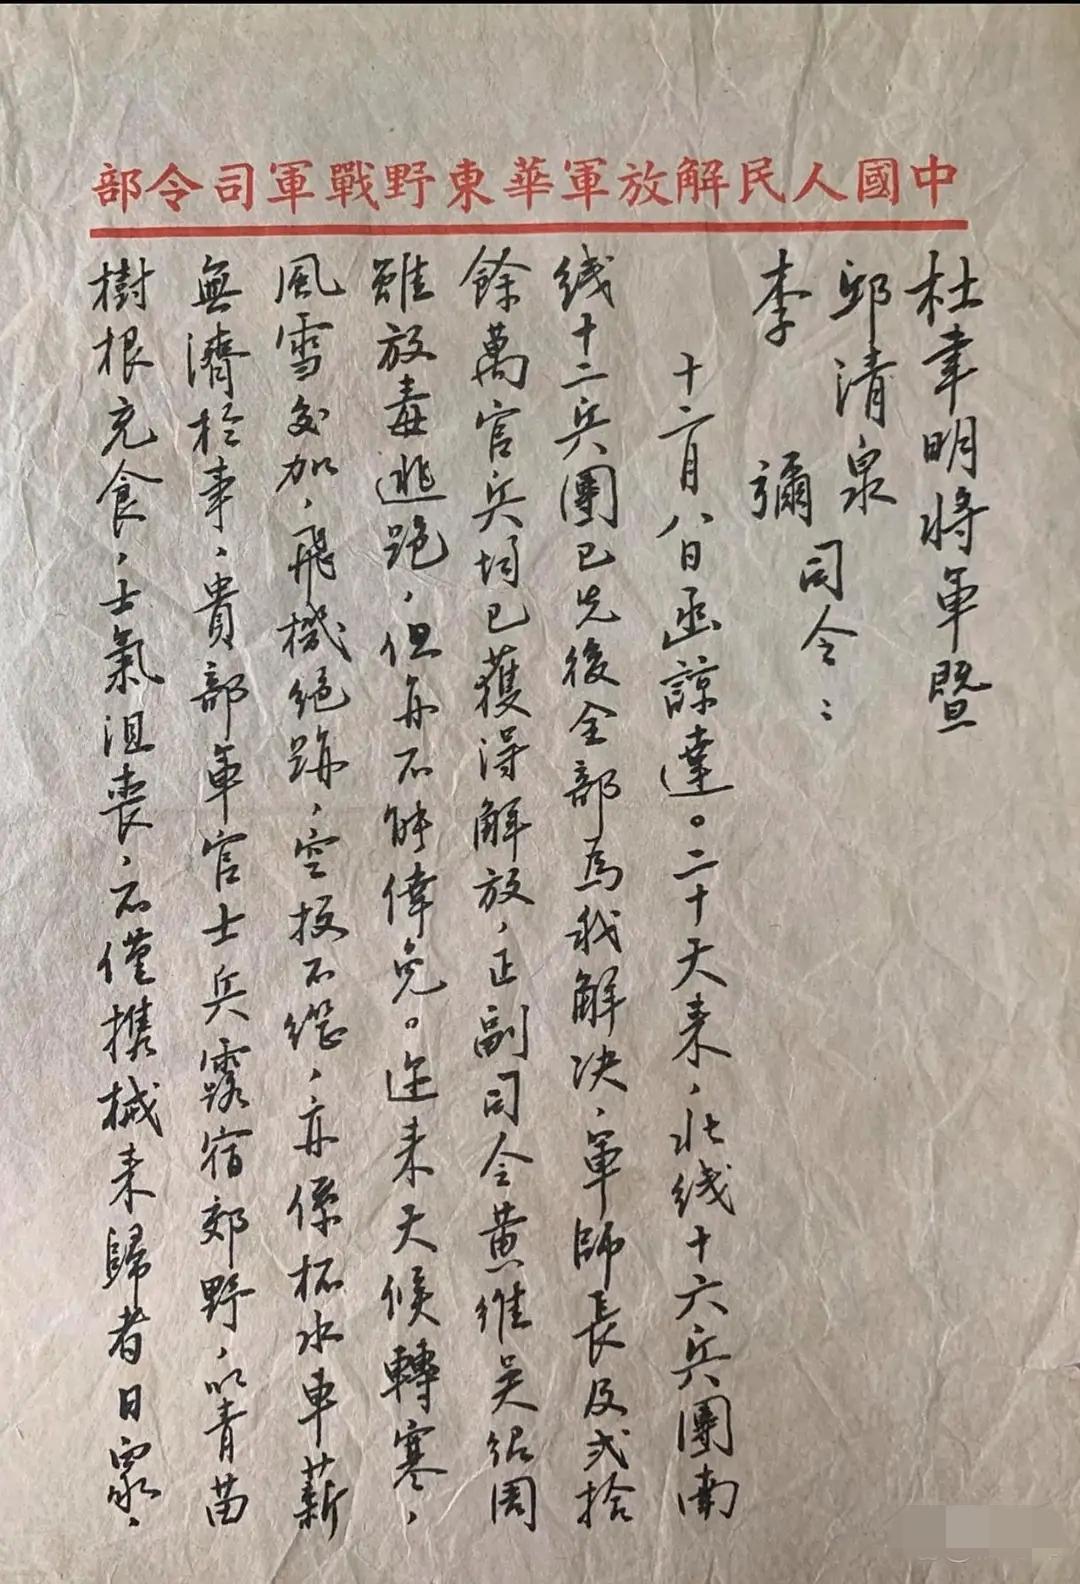 中國人民解放軍華東野戰軍司令部
杜聿明將軍暨
邱清泉
李 彌
司令：
十二月八日函諒達。二十天来，北线十六兵團南
线十二兵團已先後全部為我解决，軍師長及弍拾
餘萬官兵均已獲得解放，正副司令黄维吴绍周
雖放毒逃跑，但亦不能倖免。近来天候轉寒，
風雪交加，飛機绝跡，空投不继，亦係杯水車薪
無濟於事，貴部軍官士兵露宿郊野，以青苗
樹根充食，士氣沮喪，不僅攜械来歸者日眾，